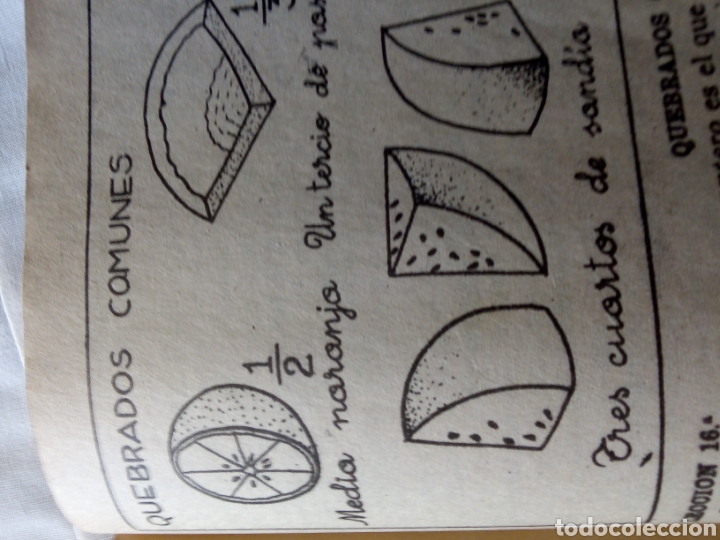 QUEBRADOS COMUNES
1
2
1
Media naranja Un tercio de
Tres cuartos de sandía
16.ª
QUEBRADOS
es el que
todocoleccion